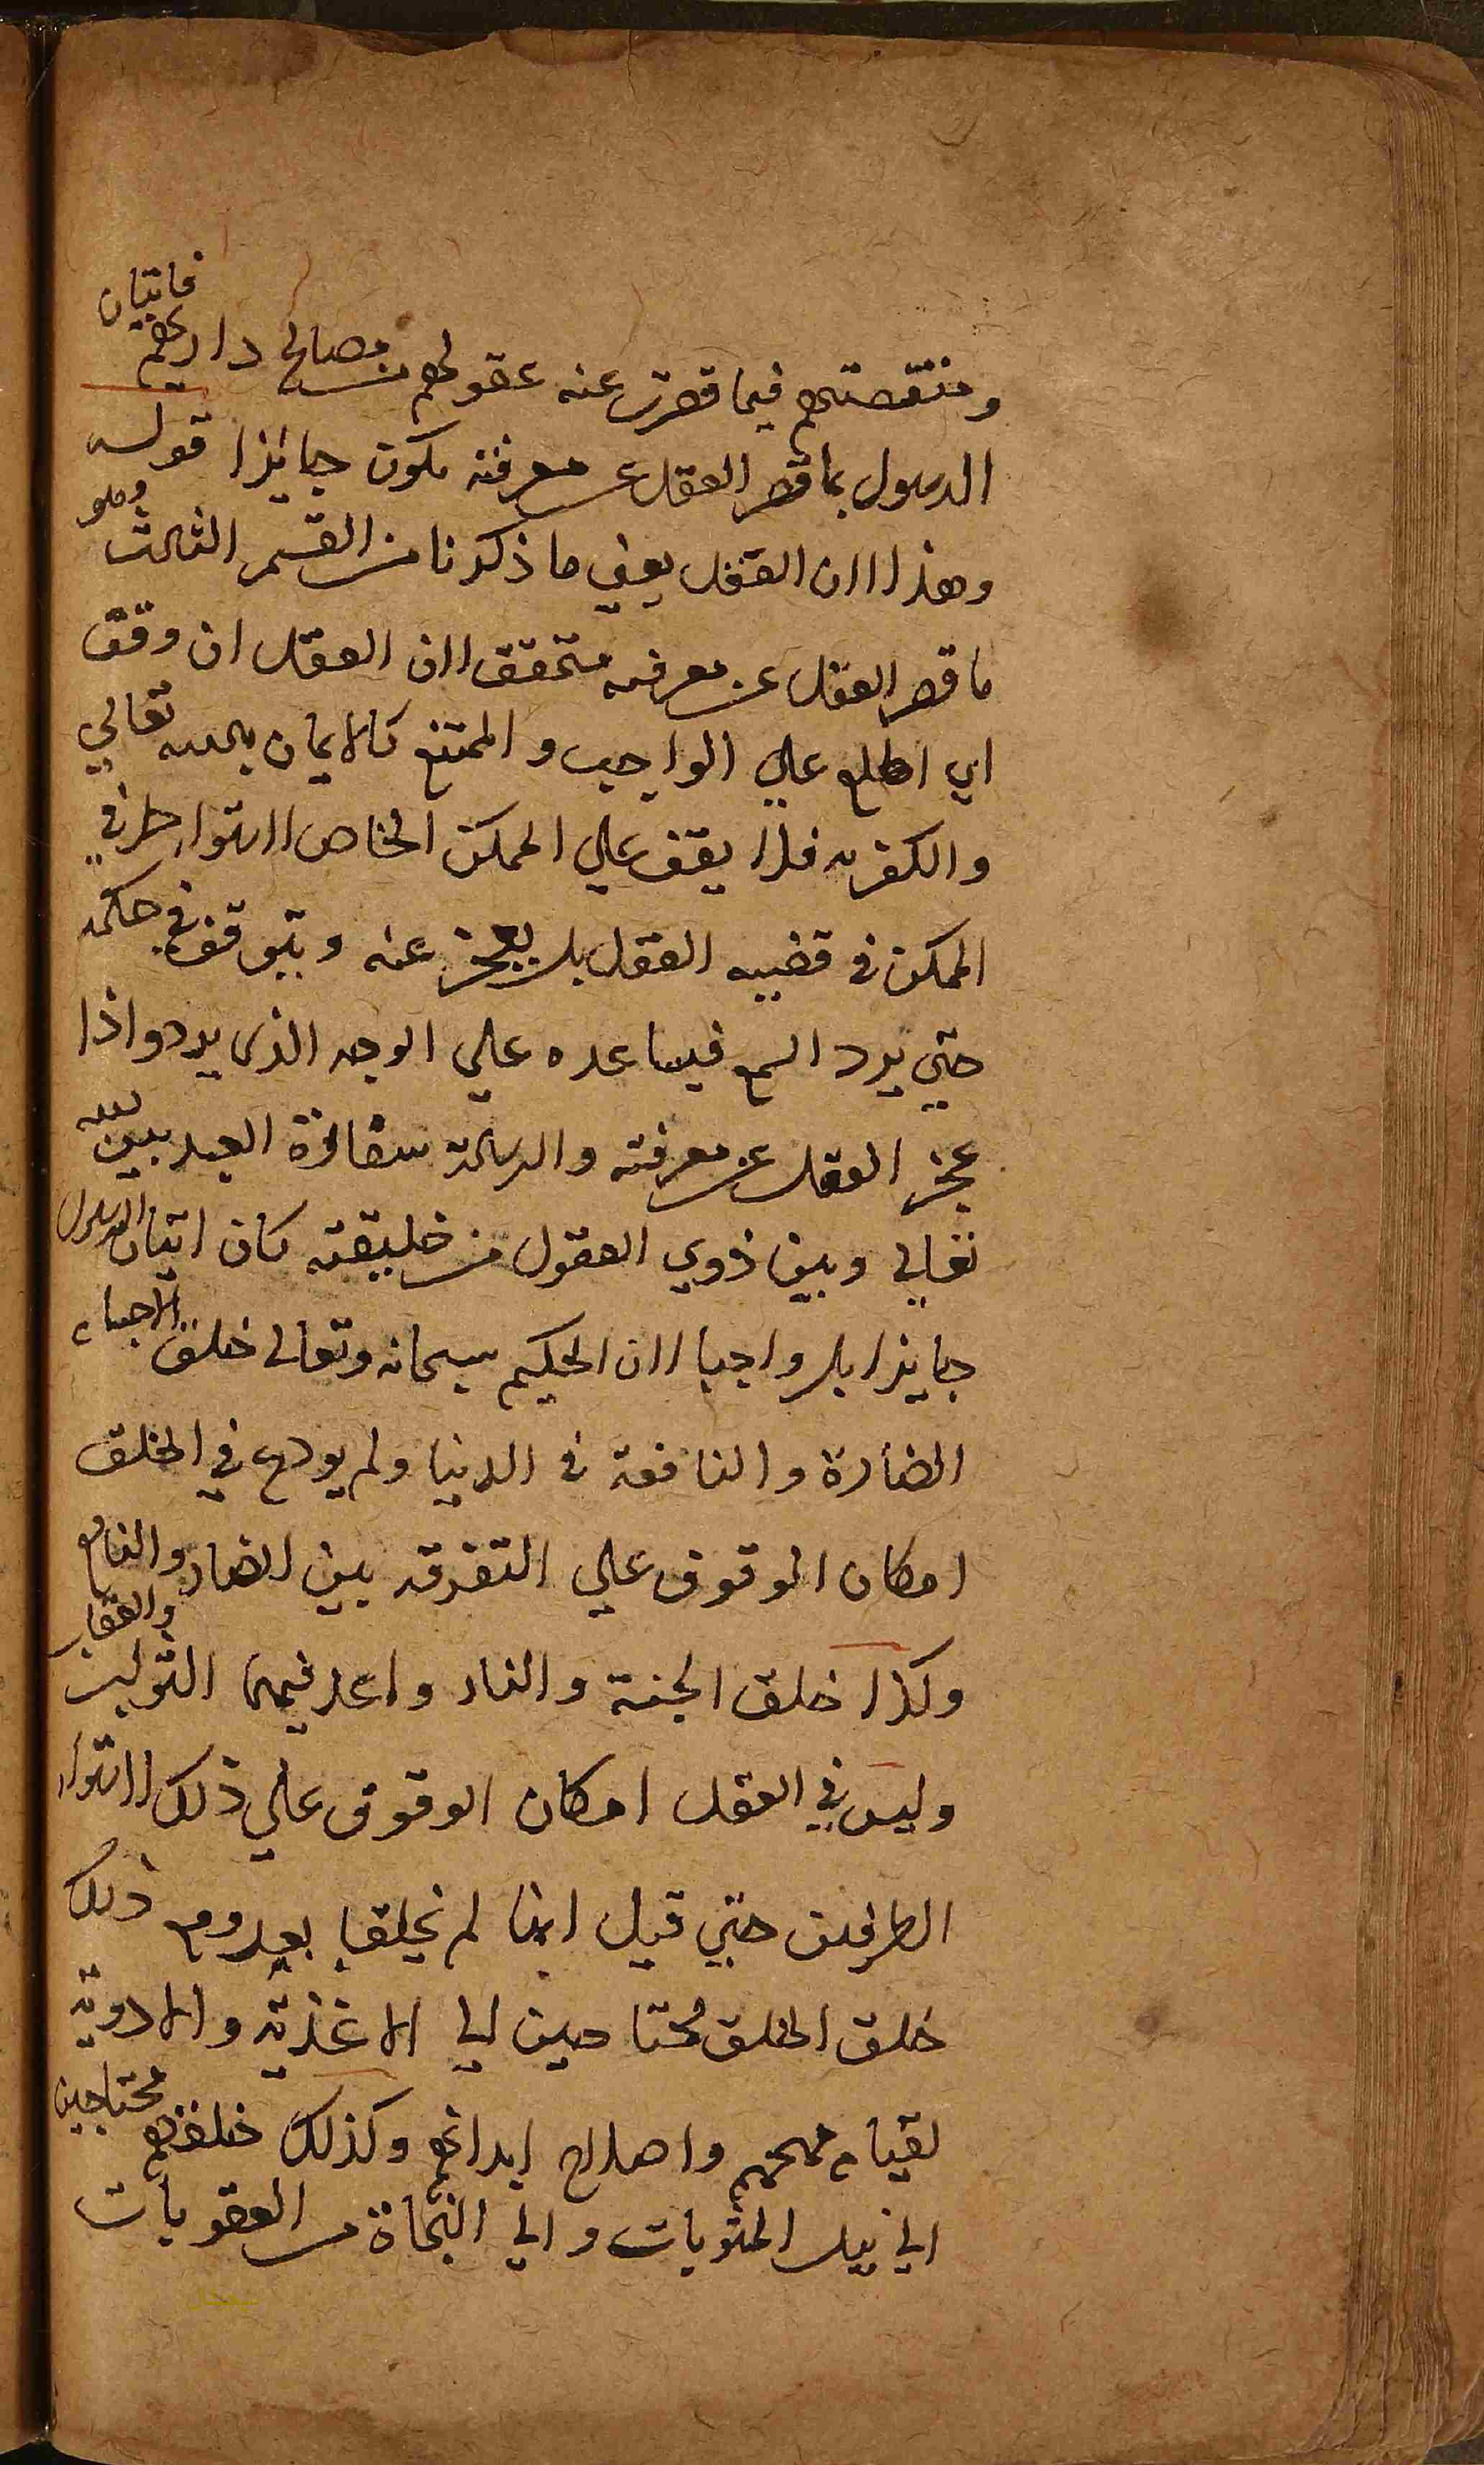 ومنقصتهم فيما قصرت عنه عقولهم من مصالح داريهم فاتيان
الرسول بما قصر العقل عن معرفته يكون جايزا قوله
وهذا لان العقل يعني ما ذكرنا من القسم الثالث وهو
ما قصر العقل عن معرفته متحقق لان العقل ان وقف
اي اطلع علي الواجب والممتنع كالايمان بالله تعالي
والكفر به فلا يقف علي الممكن الخاص لاستواء طرفي
الممكن في قضيه العقل بل يعجز عنه ويتوقف في حكمه
حتي يرد السمع فيساعده علي الوجه الذي يرد واذا
عجز العقل عن معرفته والرسالة سفارة العبد بين الله
تعالي وبين ذوي العقول من خليقته كان اتيان الرسول
جايزا بل واجبا لان الحكيم سبحانه وتعالى خلق الاجساد
الضارة والنافعة في الدنيا ولم يودع في الخلق
امكان الوقوف علي التفرقه بين الضار والنافع
وكذا خلق الجنة والنار واعد فيهما الثواب والعقاب
وليس في العقل امكان الوقوف علي ذلك لاستواء
الطرفين حتي قيل انها لم يخلقا بعد ومع ذلك
خلق الخلق محتاجين الي الاغذية والادوية
لقيام مهجهم واصلاح ابدانهم وكذلك خلقهم محتاجين
الي نيل المثوبات والي النجاة من العقوبات